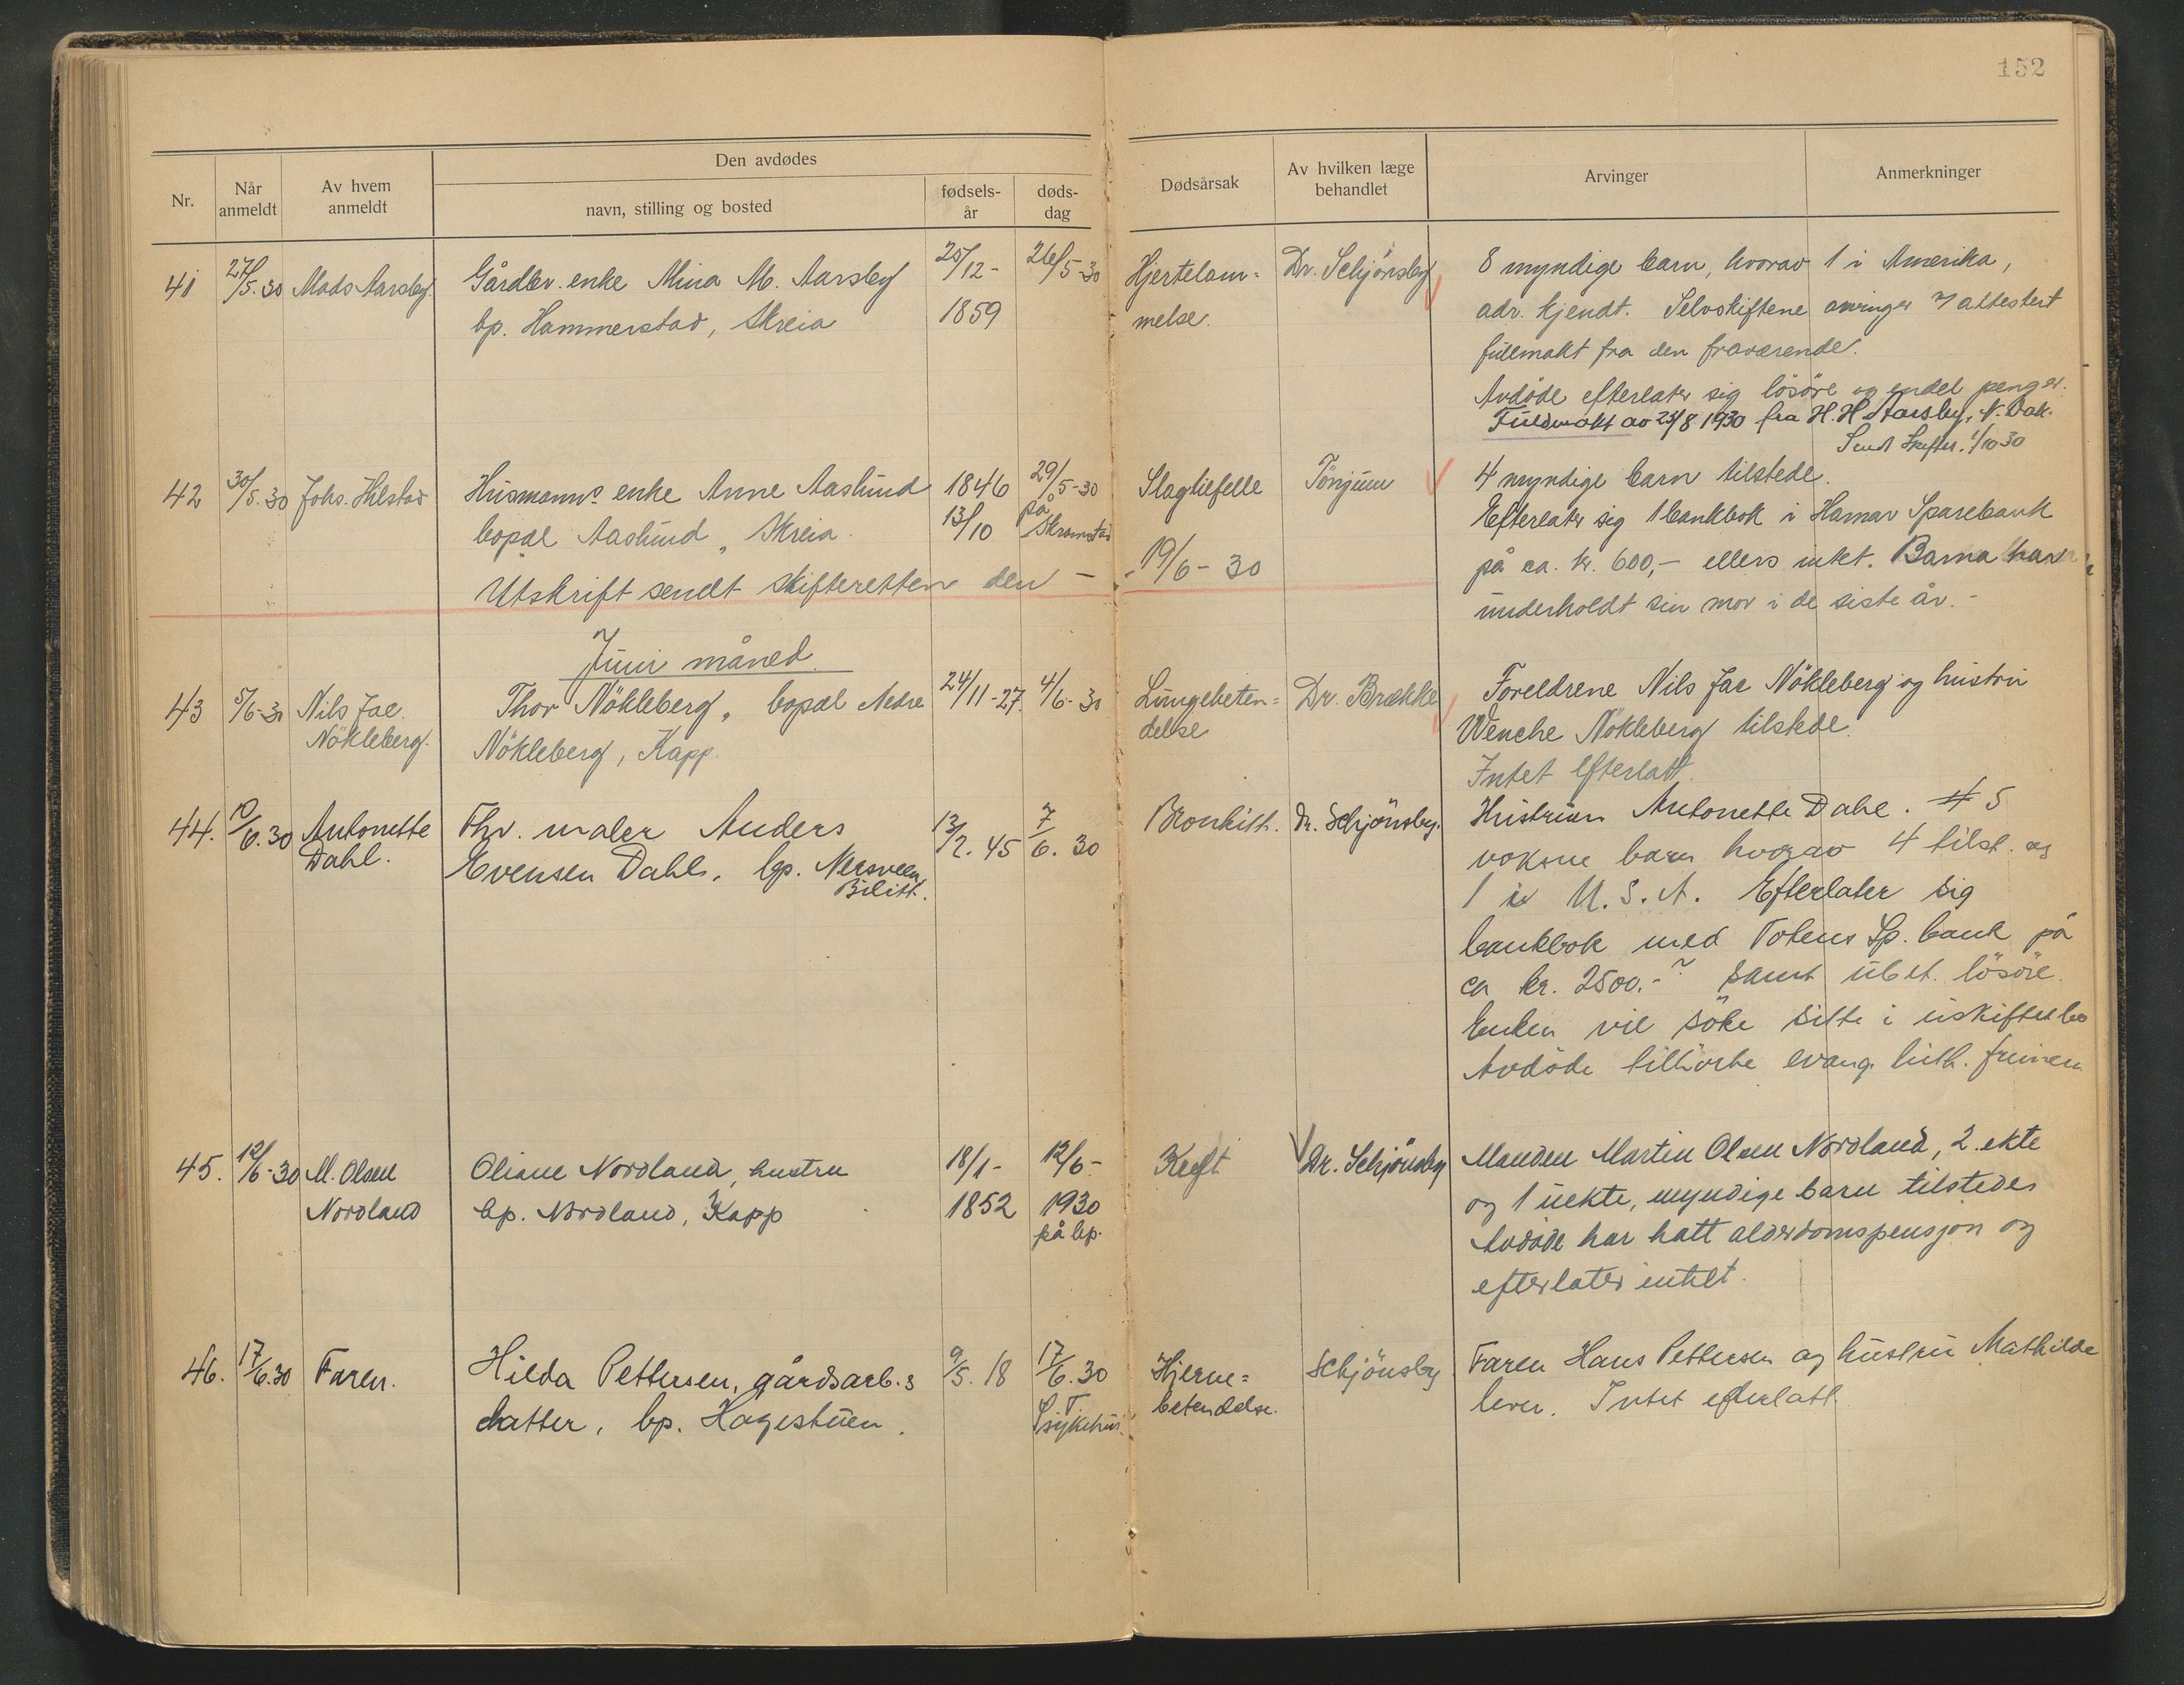 152
Nr.
Når anmeldt
Av hvem anmeldt
Den avdødes
navn, stilling og bosted
fødsels-år
døds-dag
Dødsårsak
Av hvilken læge behandlet
Arvinger
Anmerkninger
41
27/5.30
Mads Aarsby.
Gårdbr. enke Mina M. Aarsby
bp. Hammerstad, Skreia
25/12-
1859
26/5-30
Hjertelam=
melse.
Dr. Schjønsby
8 myndige barn, hvorav 1 i Amerika,
adr. kjendt. Selvskiftene arvinger attestert
fullmakt fra den fraværende.
Avdöde efterlater sig lösöre og endel penger.
Fuldmakt av 25/8 1930 fra H. H. Aarsby, N. Dak.
Sendt Skifter. 1/10 30
42
30/5.30
Johs. Hilstad
Husmanns enke Anne Aaslund
bopæl Aaslund, Skreia.
1846
13/10
29/5-30
på
Skramstad
Slagtilfelle
Tönjum
4 myndige barn tilstede.
Efterlater sig 1 bankbok i Hamar Sparebank
på ca. kr. 600,- ellers intet. Barna har
underholdt sin mor i de siste år.-
Utskrift sendt skifteretten den - - 19/6-30
Juni måned.
43
5/6-30
Nils Jac.
Nökleberg.
Thor Nökleberg, bopæl Nedre
Nökleberg, Kapp.
24/11-27.
4/6-30
Lungebeten=
delse
Dr. Brække
Foreldrene Nils Jac Nökleberg og hustru
Wenche Nökleberg tilstede.
Intet efterlatt.
44.
10/6.30
Antonette
Dahl.
Fhv. maler Anders
Evensen Dahl, bp. Nersveen
Bilitt.
13/2.45
7/6.30
Bronkitt.
Dr. Schjönsby.
Hustruen Antonette Dahl. 5
voksne barn hvorav 4 tilst. og
1 i U.S.A. Efterlater sig
bankbok med Totens Sp. bank på
ca kr. 2500.-? samt ubet. lösöre.
Enken vil söke sitte i uskiftet bo
Avdöde tillhörte evang. luth. frimen.
45.
12/6-30
M. Olsen
Nordland
Oliane Nordland, hustru
bp. Nordland, Kapp
18/1-
1852
12/6-
1930
på bp.
Kreft
Dr. Schjönsby
Manden Martin Olsen Nordland, 2 ekte
og 1 uekte, myndige barn tilstede.
Avdöde har hatt alderdomspensjon og
efterlater intet.
46.
17/6.30
Faren.
Hilda Pettersen, gårdsarb.s
datter, bp. Hagestuen.
9/5.18
17/6.30
T.
sykehus.
Hjerne=
betendelse.
Schjönsby
Faren Hans Pettersen og hustru Mathilde
lever. Intet efterlatt.